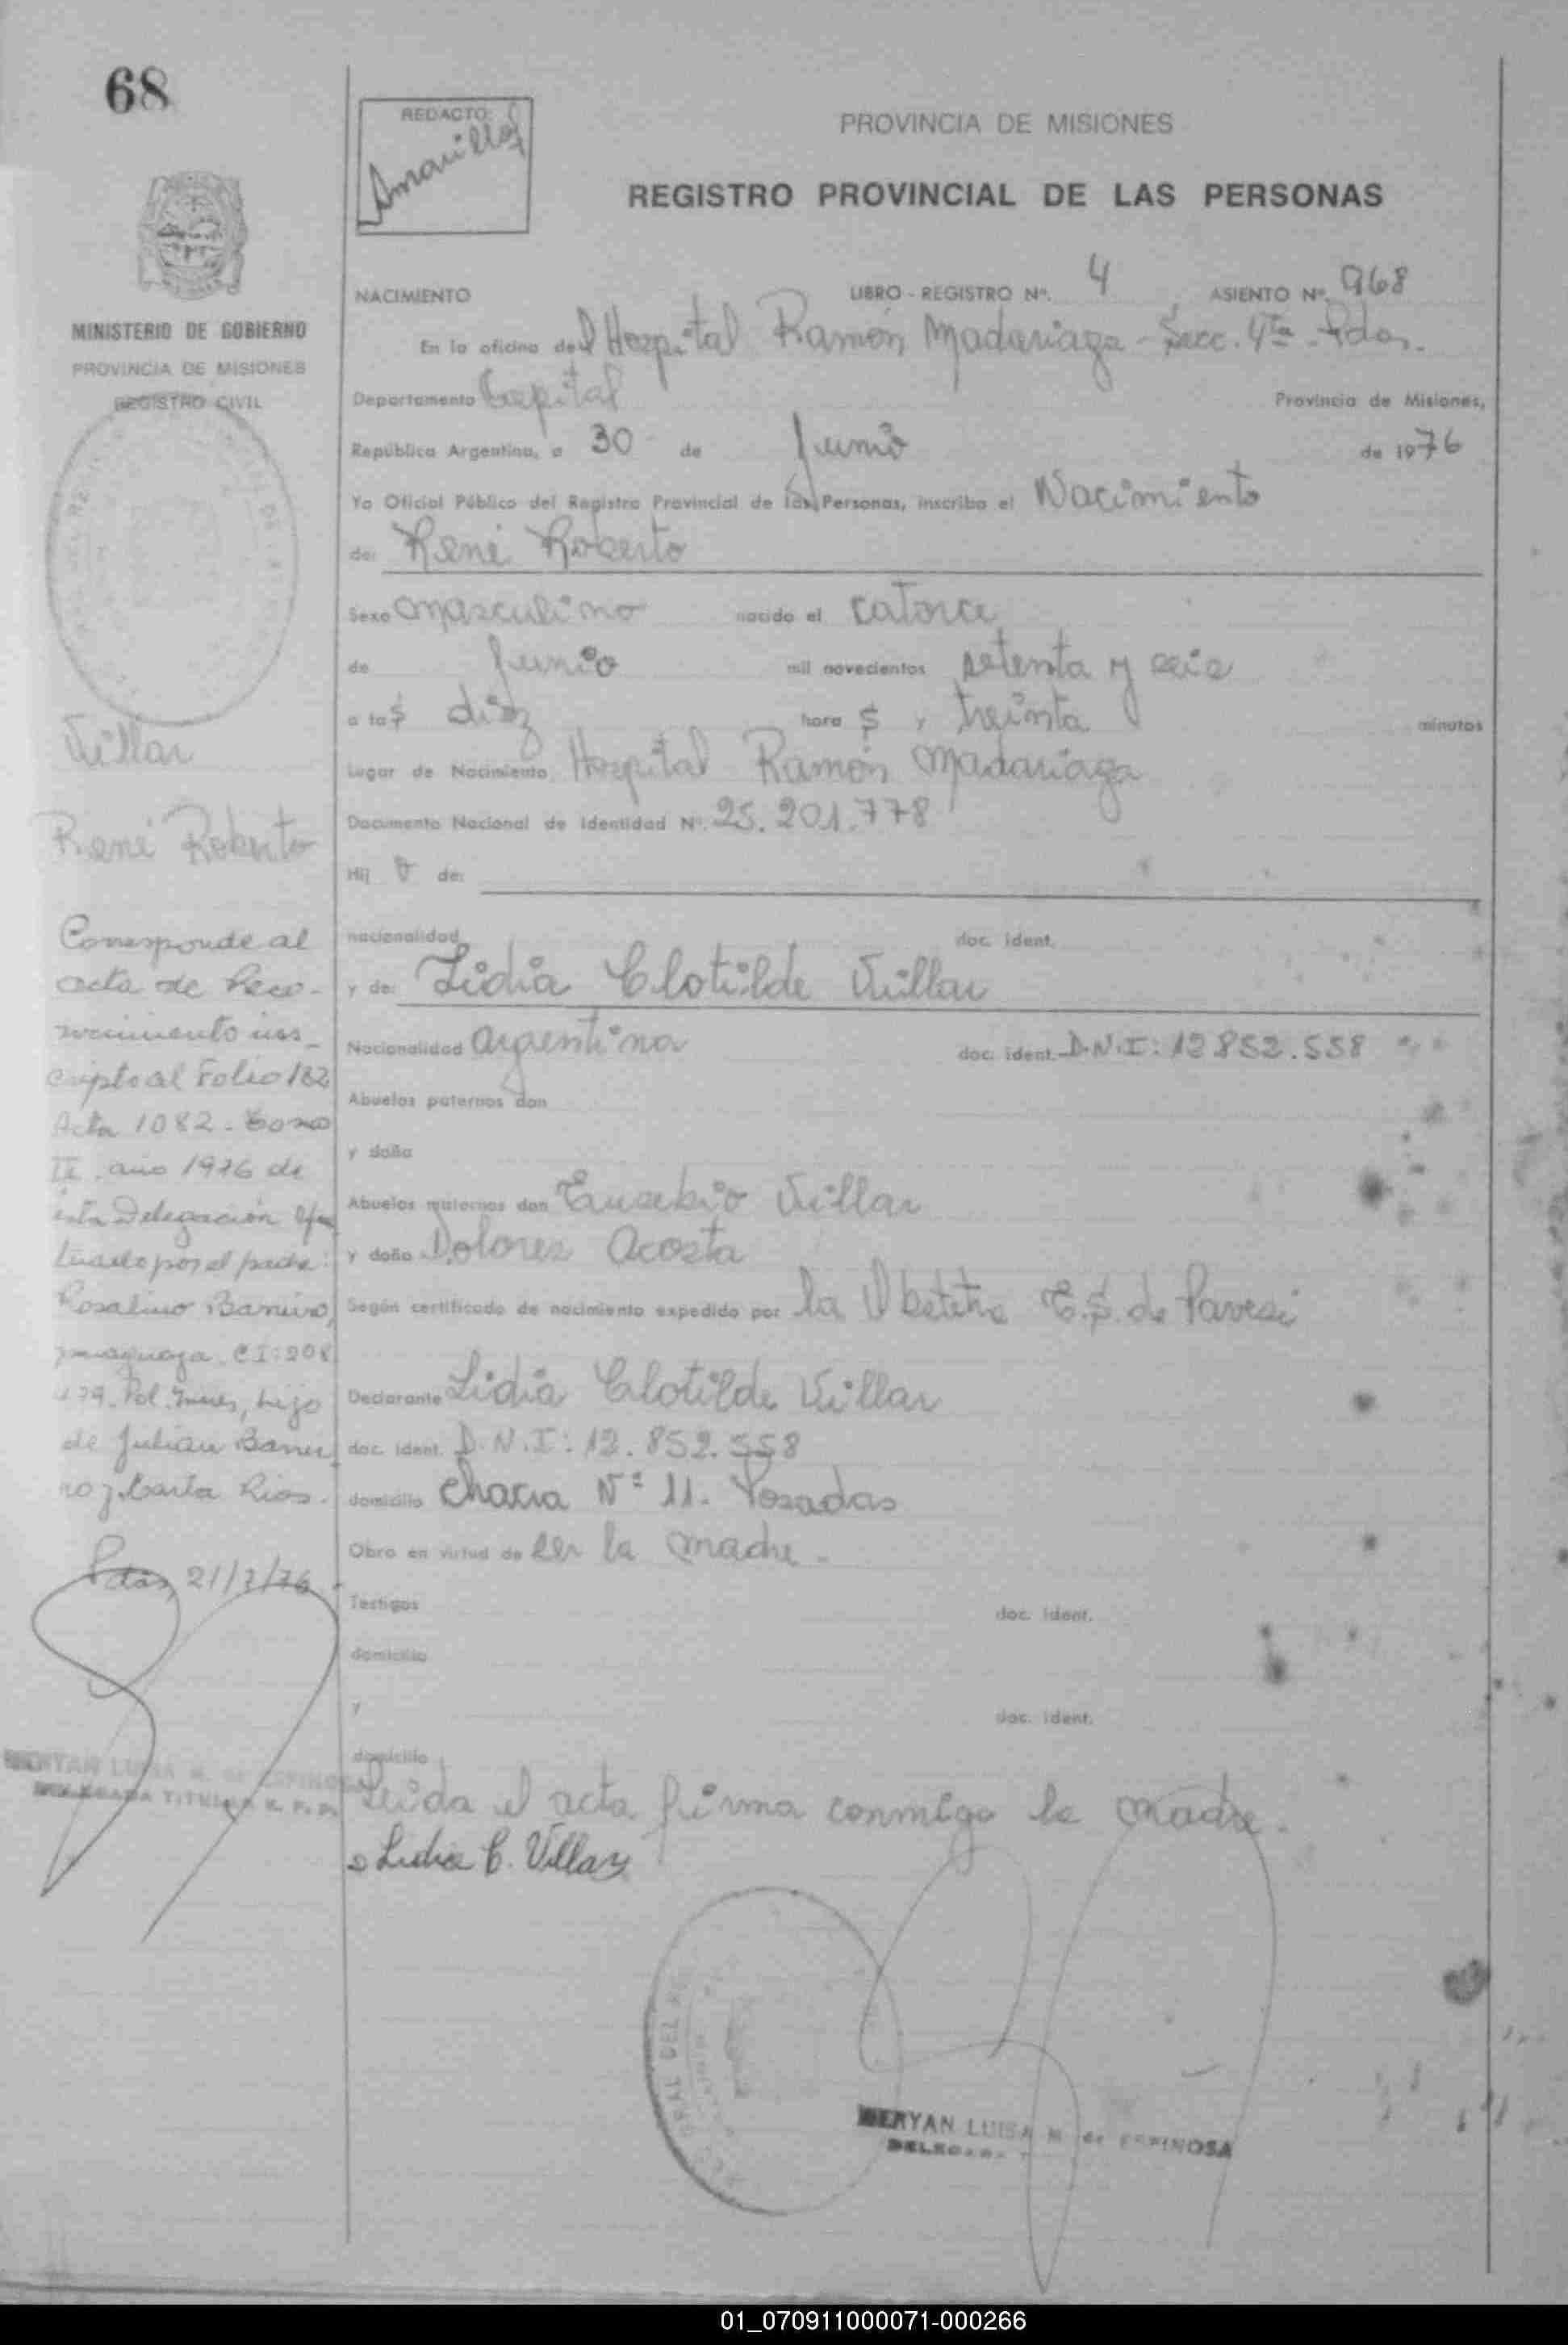 68
REDACTO:
PROVINCIA DE MISIONES
REGISTRO PROVINCIAL DE LAS PERSONAS
NACIMIENTO LIBRO - REGISTRO Nº. 4 ASIENTO Nº. 968
MINISTERIO DE GOBIERNO
PROVINCIA DE MISIONES
REGISTRO CIVIL
En la oficina del Hospital Ramón Madariaga - Secc. 4ta - Pdas.
Departamento Capital Provincia de Misiones,
República Argentina, a 30 de Junio de 1976
Yo Oficial Público del Registro Provincial de las Personas, inscribo el Nacimiento
de: René Roberto
Sexo masculino nacido el catorce
de Junio mil novecientos setenta y seis
a las diez horas y treinta minutos
Lugar de Nacimiento Hospital Ramón Madariaga
Documento Nacional de Identidad Nº. 25.201.778
Hij o de:
nacionalidad doc. ident.
y de: Lidia Clotilde Villar
Nacionalidad argentina doc. ident. D.N.I: 12.852.558
Abuelos paternos don
y doña
Abuelos maternos don Eusebio Villar
y doña Dolores Acosta
Según certificado de nacimiento expedido por la Obstetra E.S. de Pavesi
Declarante Lidia Clotilde Villar
doc. ident. D.N.I: 12.852.558
domicilio Chacra Nº 11. Posadas
Obra en virtud de ser la madre -
Testigos doc. ident.
domicilio
y doc. ident.
domicilio
Leida el acta firma conmigo la madre.
Lidia C. Villar
Villar
René Roberto
Corresponde al
acta de Reco-
nocimiento ins-
cripto al Folio 182
Acta 1082 - Tomo
II año 1976 de
esta Delegación efec
tuado por el padre:
Rosalino Barreiro,
paraguayo. C.I: 208
479. Pol. Mnes, hijo
de Julián Barrei
ro y Marta Rios.
Pdas, 21/7/76
MERYAN LUISA M. de ESPINOSA
DELEGADA TITULAR R. P. P.
MERYAN LUISA M. de ESPINOSA
DELEGADA
01_070911000071-000266